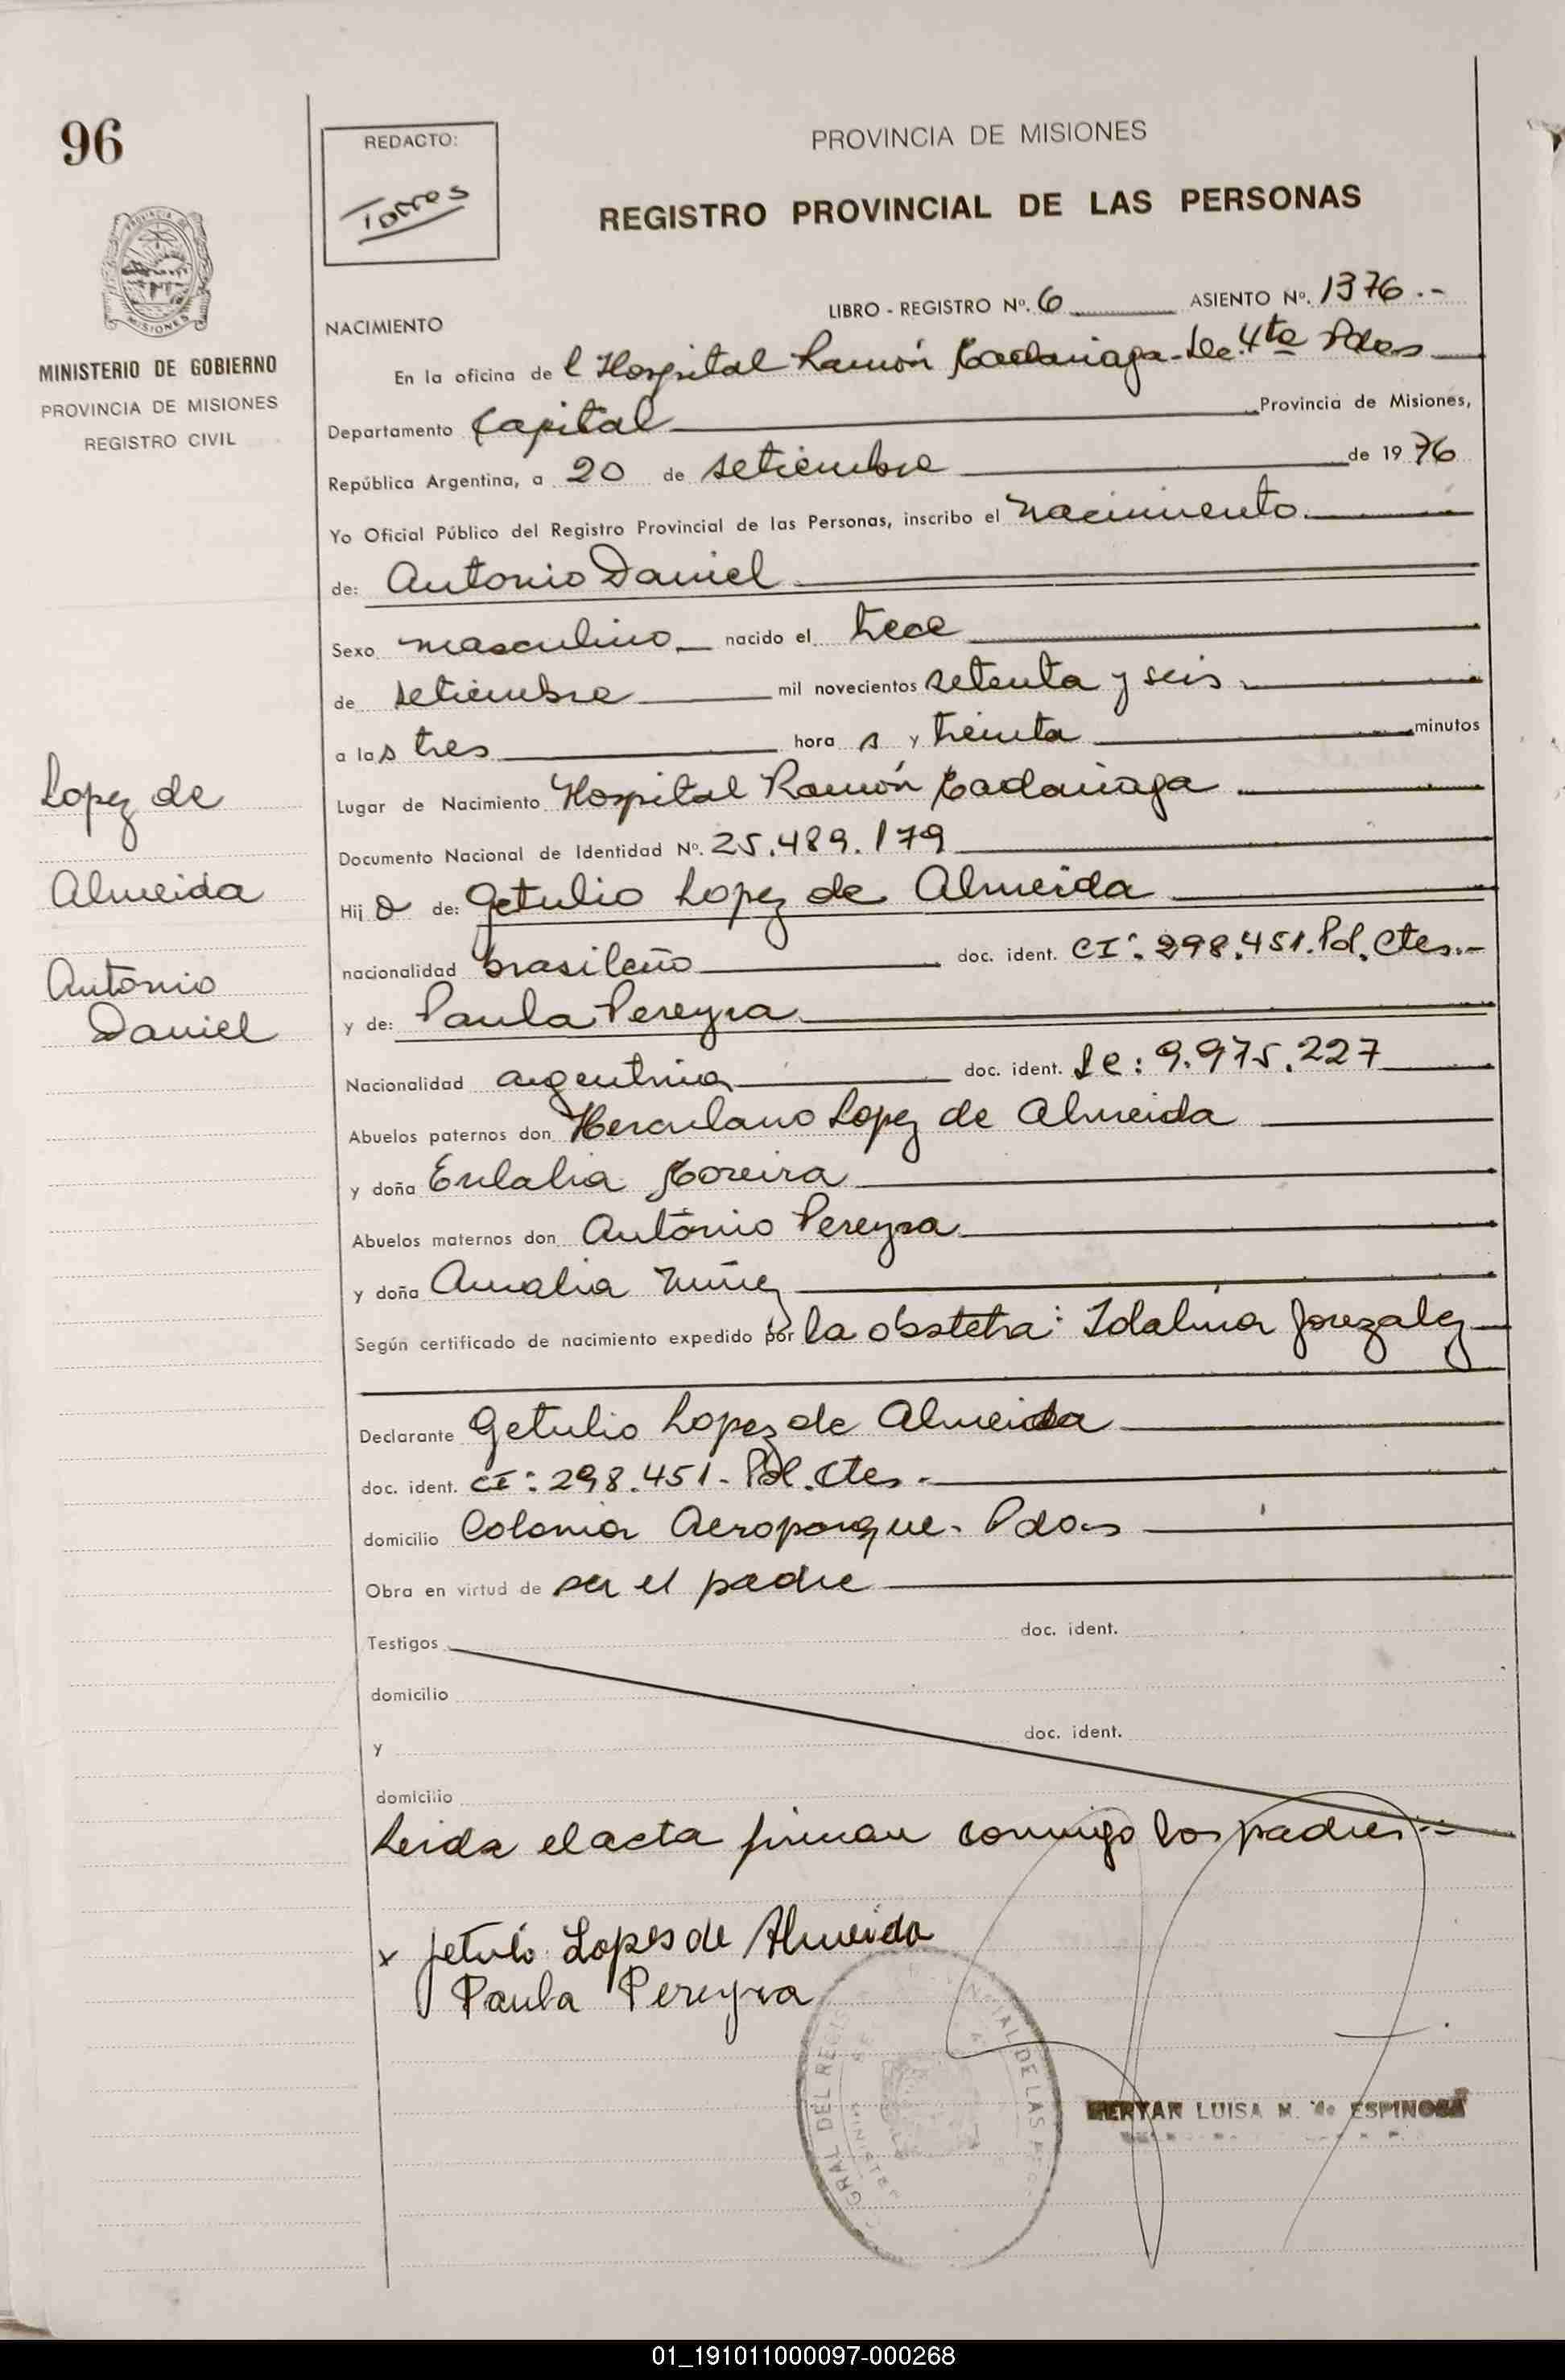 96
REDACTO:
Torres
PROVINCIA DE MISIONES
REGISTRO PROVINCIAL DE LAS PERSONAS
MISIONES
MINISTERIO DE GOBIERNO
PROVINCIA DE MISIONES
REGISTRO CIVIL
LIBRO - REGISTRO Nº. 6 ASIENTO Nº. 1376.-
NACIMIENTO
En la oficina de l Hospital Ramón Madariaga - 4ta Pdas
Departamento Capital Provincia de Misiones,
República Argentina, a 20 de setiembre de 1976
Yo Oficial Público del Registro Provincial de las Personas, inscribo el nacimiento.
de: Antonio Daniel
Sexo masculino nacido el trece
de setiembre mil novecientos setenta y seis
a las tres hora s y treinta minutos
Lugar de Nacimiento Hospital Ramón Madariaga
Documento Nacional de Identidad Nº. 25.489.179
Lopez de
Almeida
Antonio
Daniel
Hij o de: Getulio Lopez de Almeida
nacionalidad brasileño doc. ident. CI: 298.451. Pol. Ctes.-
y de: Paula Pereyra
Nacionalidad argentina doc. ident. Lc: 9.975.227
Abuelos paternos don Herculano Lopez de Almeida
y doña Eulalia Moreira
Abuelos maternos don Antonio Pereyra
y doña Amalia Nuñez
Según certificado de nacimiento expedido por la obstetra: Idalina Gonzalez
Declarante Getulio Lopez de Almeida
doc. ident. CI: 298.451- Pol. Ctes.-
domicilio Colonia Aeroparque. Pdas
Obra en virtud de ser el padre
Testigos doc. ident.
domicilio
y doc. ident.
domicilio
Leida el acta firman conmigo los padres.-
x Getulio Lopes de Almeida
Paula Pereyra
GRAL DEL REGIS DE LAS
LUISA M. de ESPINOSA
01_191011000097-000268